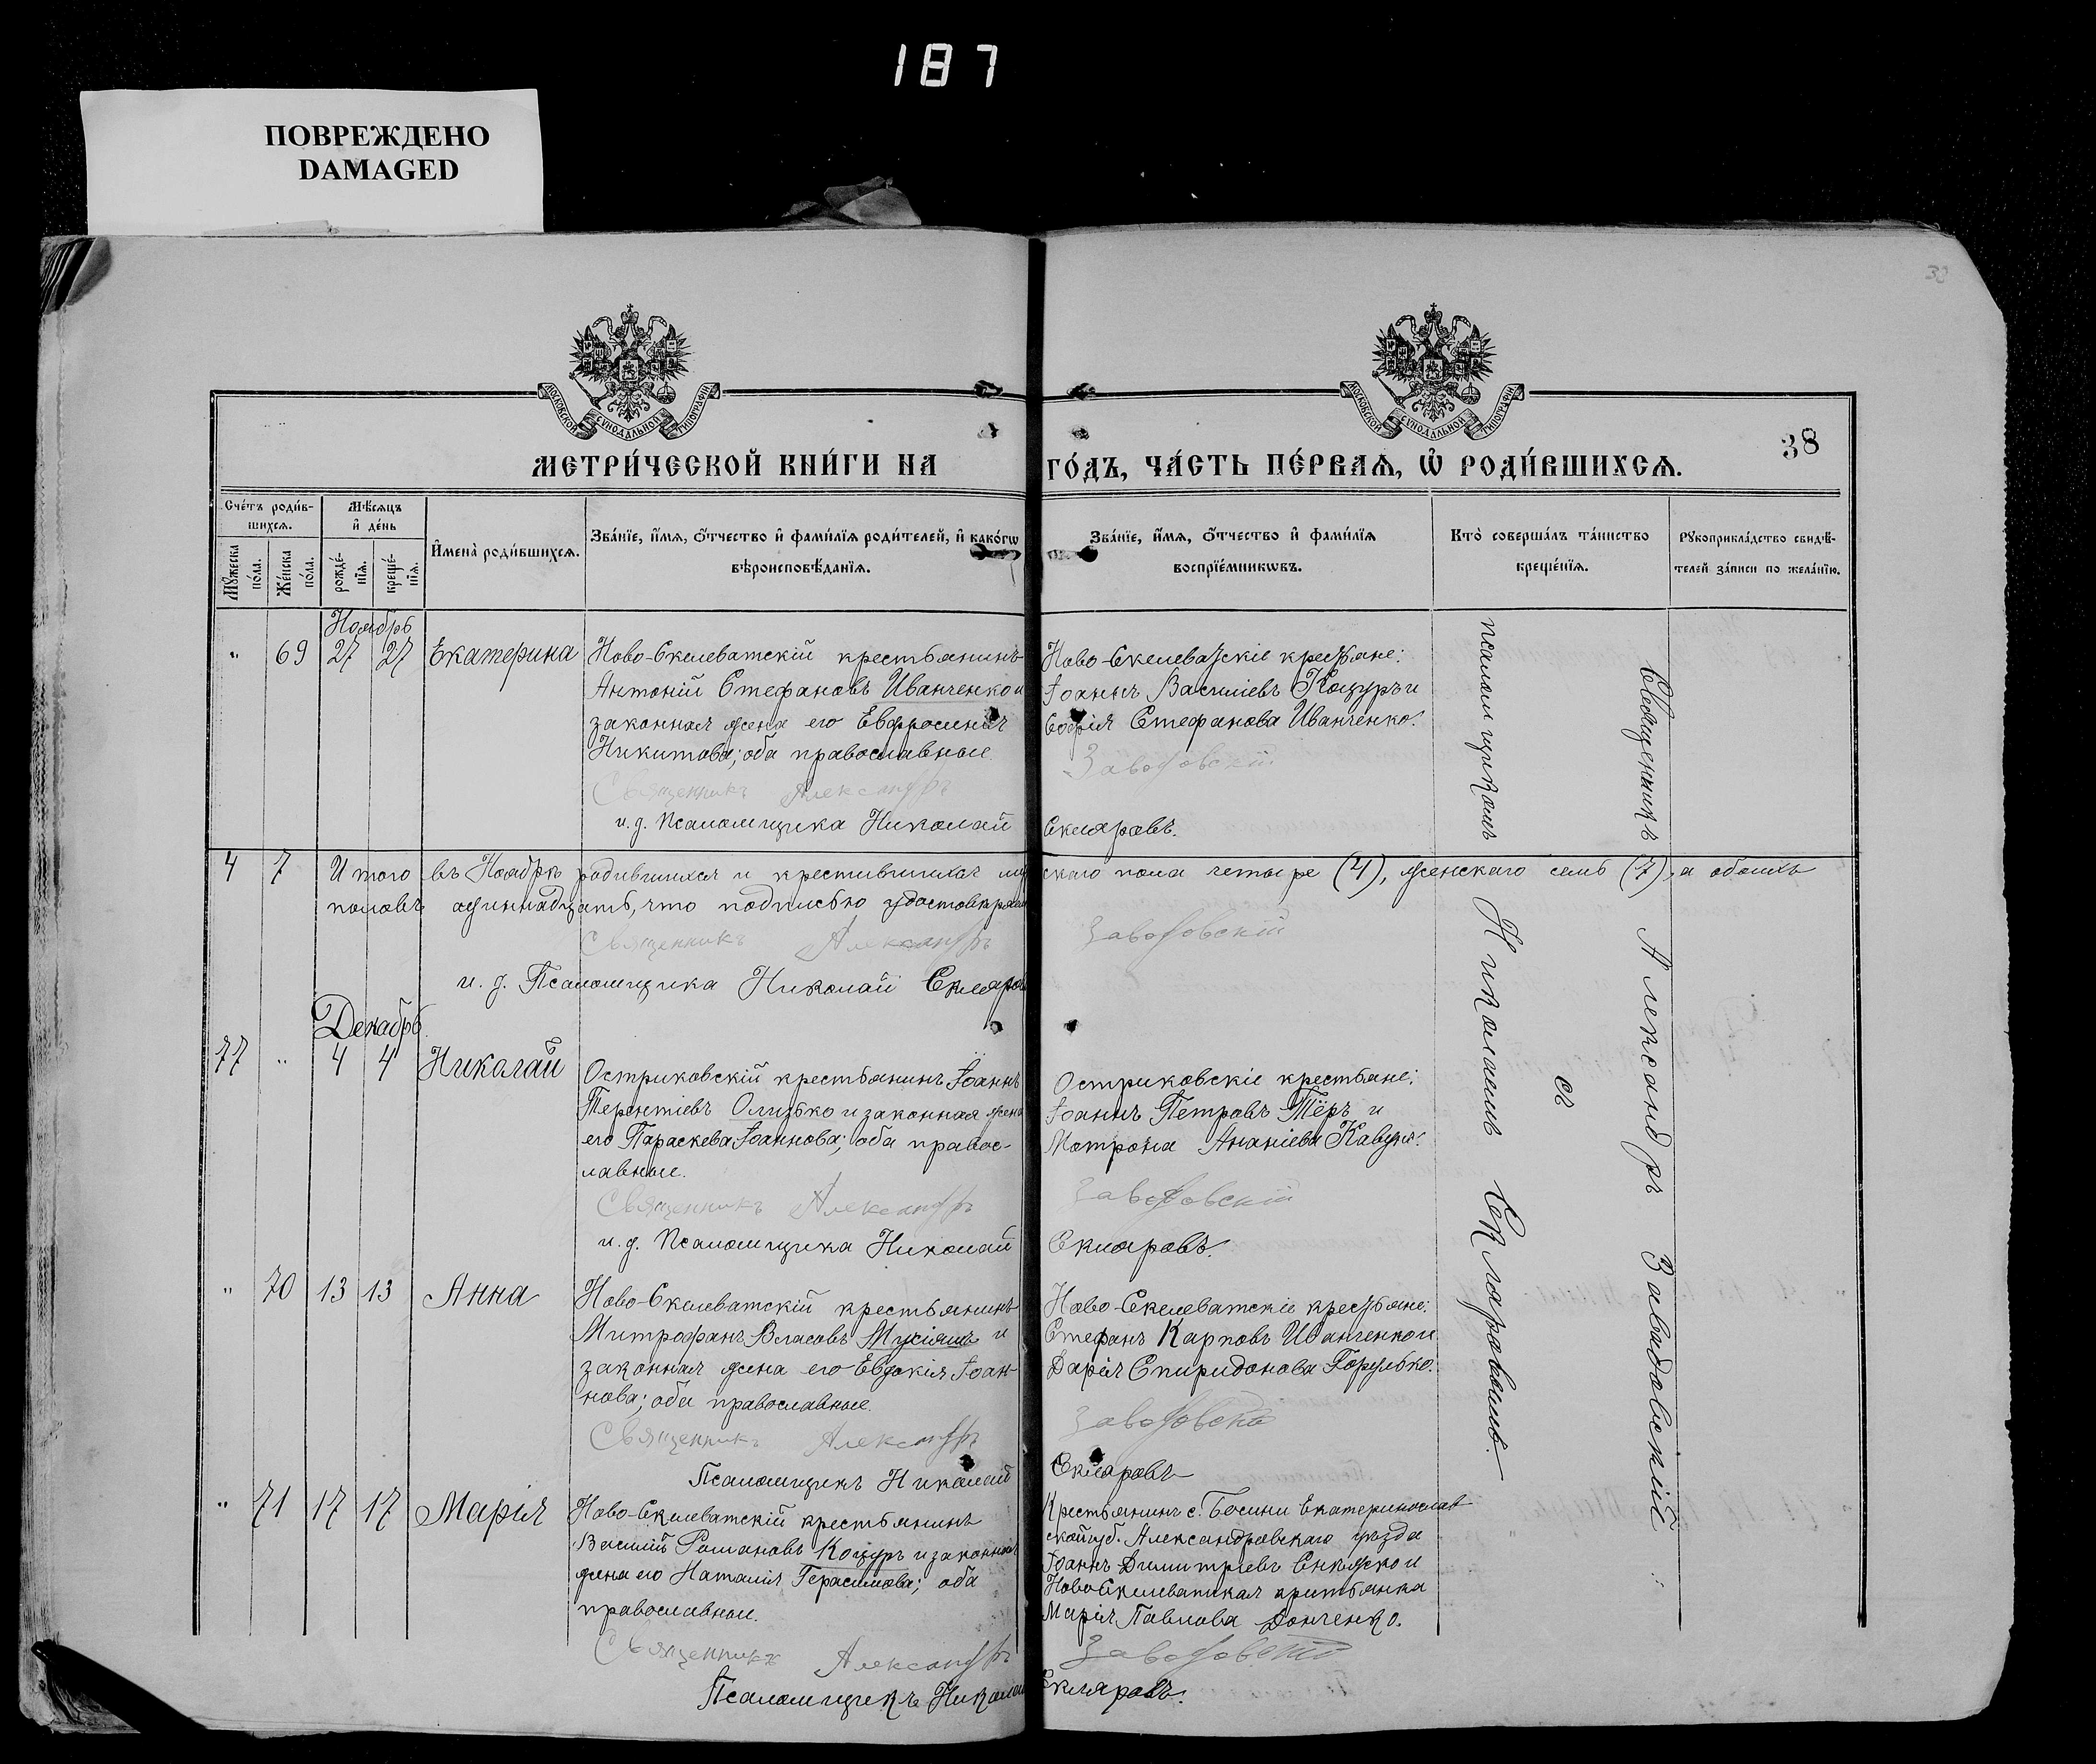 187
ПОВРЕЖДЕНО
DAMAGED
38
МОСКОВСКОЙ СѴНОДАЛЬНОЙ ТИПОГРАФІИ
МОСКОВСКОЙ СѴНОДАЛЬНОЙ ТИПОГРАФІИ
МЕТРИ́ЧЕСКОЙ КНИ́ГИ НА ГО́ДЪ, ЧА́СТЬ ПЕ́РВАѦ, Ѽ РОДИ́ВШИХСѦ.
Сче́тъ роди́в-
шихсѧ.
Мѣ́сѧцъ
и҆ де́нь
Мꙋ́жеска по́ла.
Же́нска по́ла.
рожде́-
нїѧ.
креще́-
нїѧ.
И҆мена̀ роди́вшихсѧ.
Зва́нїе, и҆́мѧ, ѻ҆́тчество и҆ фами́лїѧ роди́телей, и҆ како́гѡ
вѣроисповѣ́данїѧ.
Зва́нїе, и҆́мѧ, ѻ҆́тчество и҆ фами́лїѧ
воспрїе́мникѡвъ.
Кто̀ соверша́лъ та́инство
креще́нїѧ.
Рꙋкоприкла́дство свидѣ́-
телей за́писи по жела́нїю.
Ноябрь
" 69 27 27 Екатерина
Ново-Скелеватскій крестьянинъ
Антоній Стефановъ Иванченко и
законная жена его Евфросинія
Никитова; оба православные.
Священникъ Александръ
и. д. Псаломщика Николай
Ново-Скелеватскіе крестьяне:
Іоаннъ Василіевъ Коцуръ и
Софія Стефанова Иванченко.
Завадовскій
Скляровъ.
4 7 Итого въ Ноябрѣ родившихся и крестившихся мужскаго пола четыре (4), женскаго семь (7), а обоихъ
половъ одиннадцать, что подписью удостовѣряемъ
Священникъ Александръ Завадовскій
и. д. Псаломщика Николай Скляровъ
Декабрь.
77 " 4 4 Николай
Остриковскій крестьянинъ Іоаннъ
Терентіевъ Олизько и законная жена
его Параскева Іоаннова; оба правос-
лавные.
Священникъ Александръ
и. д. Псаломщика Николай
Остриковскіе крестьяне:
Іоаннъ Петровъ Тёръ и
Матрона Ананіева Кавунъ.
Завадовскій
Скляровъ.
" 70 13 13 Анна
Ново-Скелеватскій крестьянинъ
Митрофанъ Власовъ и
законная жена его Евдокія Іоан-
нова; оба православные.
Священникъ Александръ
Псаломщикъ Николай
Ново-Скелеватскіе крестьяне:
Стефанъ Карповъ Иванченко и
Дарія Спиридонова Горулько.
Завадовскій
Скляровъ
" 71 17 17 Марія
Ново-Скелеватскій крестьянинъ
Василій Романовъ Коцуръ и законная
жена его Наталія Герасимова; оба
православные.
Священникъ Александръ
Псаломщикъ Николай
Крестьянинъ с. Босини Екатеринослав
ской губ. Александровскаго уѣзда
Іоаннъ Димитріевъ и
Ново Скелеватская крестьянка
Марія Павлова Донченко.
Завадовскій
Скляровъ.
Священникъ Александръ Завадовскій
съ
псаломщикомъ Николаемъ Скляровымъ.